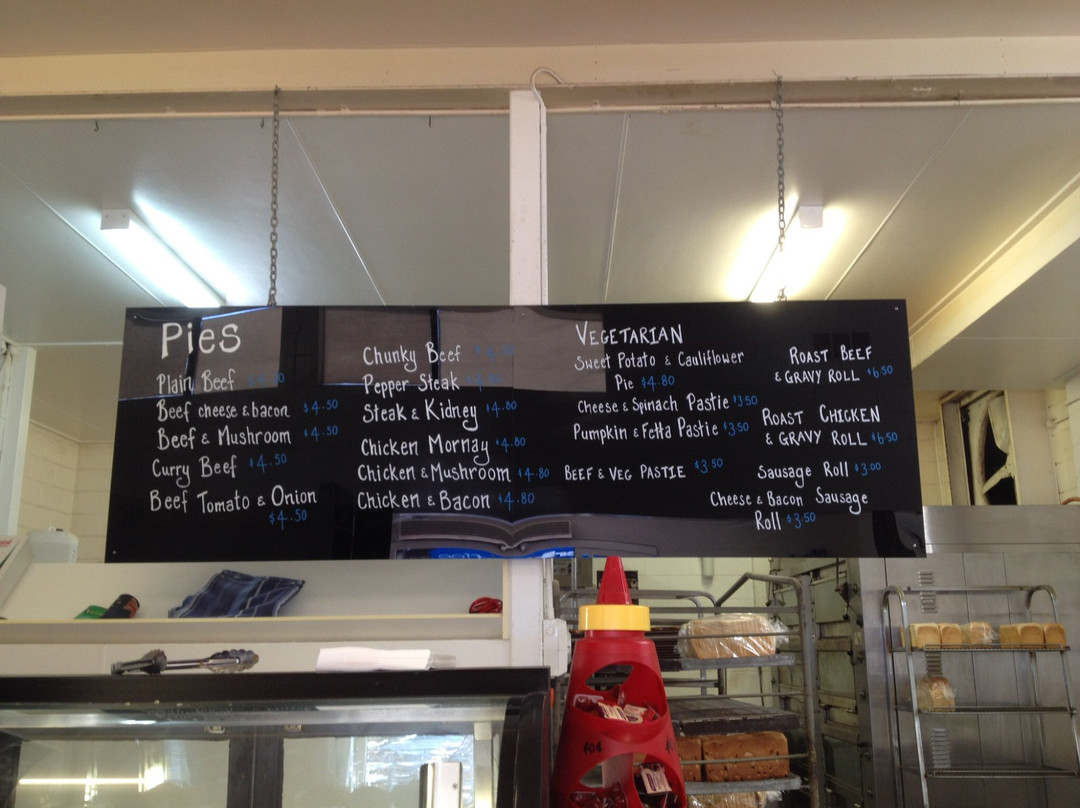 Pies
Plain Beef
Beef cheese & bacon $4.50
Beef & Mushroom $4.50
Curry Beef $4.50
Beef Tomato & Onion
$4.50
Chunky Beef
Pepper Steak
Steak & Kidney $4.80
Chicken Mornay $4.80
Chicken & Mushroom $4.80
Chicken & Bacon $4.80
VEGETARIAN
Sweet Potato & Cauliflower
Pie $4.80
Cheese & Spinach Pastie $3.50
Pumpkin & Fetta Pastie $3.50
BEEF & VEG PASTIE $3.50
ROAST BEEF
& GRAVY ROLL $6.50
ROAST CHICKEN
& GRAVY ROLL $6.50
Sausage Roll $3.00
Cheese & Bacon Sausage
Roll $3.50
40¢